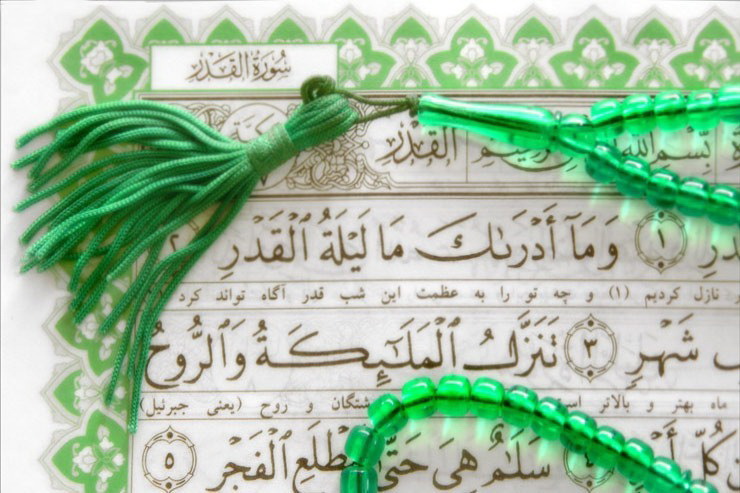 سُورَةُ الْقَدْرِ
بِسْمِ اللهِ
الْقَدْرِ
دْرِ ۝١ وَمَآ أَدْرَىٰكَ مَا لَيْلَةُ الْقَدْرِ ٢
نازل کردیم (١) و چه تو را به عظمت این شب قدر آگاه تواند کرد
شَهْرٍ ۝٣ تَنَزَّلُ الْمَلَـٰٓئِكَةُ وَالرُّوحُ
ماه بهتر و بالاتر و روح (یعنی جبرئیل)
كُلِّ ۝٤ سَلَـٰمٌ هِيَ حَتَّىٰ مَطْلَعِ الْفَجْرِ ۝٥